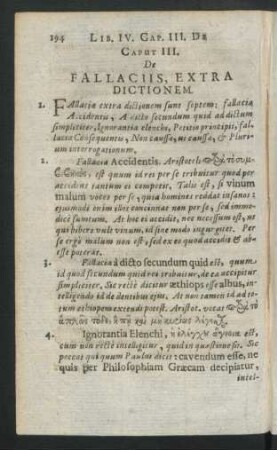 194 LIB. IV. CAP. III. DE
CAPUT III.
De
FALLACIIS, EXTRA
DICTIONEM.
1. FAllaciæ extra dictionem sunt septem: fallacia
Accidentis, A dicto secundum quid ad dictum
simpliciter, Ignorantia elenchi, Petitio principii, fal-
lacia Consequentis, Non caussa, ut caussa, & Pluri-
um interrogationum.
2. Fallacia Accidentis, Aristoteli
est quum id rei per se tribuitur quod per
accidens tantum ei competit. Talis est, si vinum
malum voces per se, quia homines reddat insanos:
ejusmodi enim illi convenit non per se, sed im-
modicè sumtum. At hoc ei accidit, nec necessum est, ne
qui bibere vult vinum, id sine modo ingurgitet. Per
se ergo malum non est, sed ex eo quod accidit & ab-
esse poterat.
3. Fallacia à dicto secundum quid est, quum
id quod secundum quid rei tribuitur, de ea accipitur
simpliciter. Sic rectè dicitur æthiops esse albus, in-
telligendo id de dentibus ejus. At non tamen id ad to-
tum æthiopem extendi potest. Aristot. vocat
ἁπλῶς τόδε, ἢ πῆ καὶ μὴ κυρίως
4. Ignorantia Elenchi, ἐλέγχου ἄγνοια est,
cum non rectè intelligitur, quid in quæstione sit. Sic
peccat qui quum Paulus dicit: cavendum esse, ne
quis per Philosophiam Græcam decipiatur,
intel-